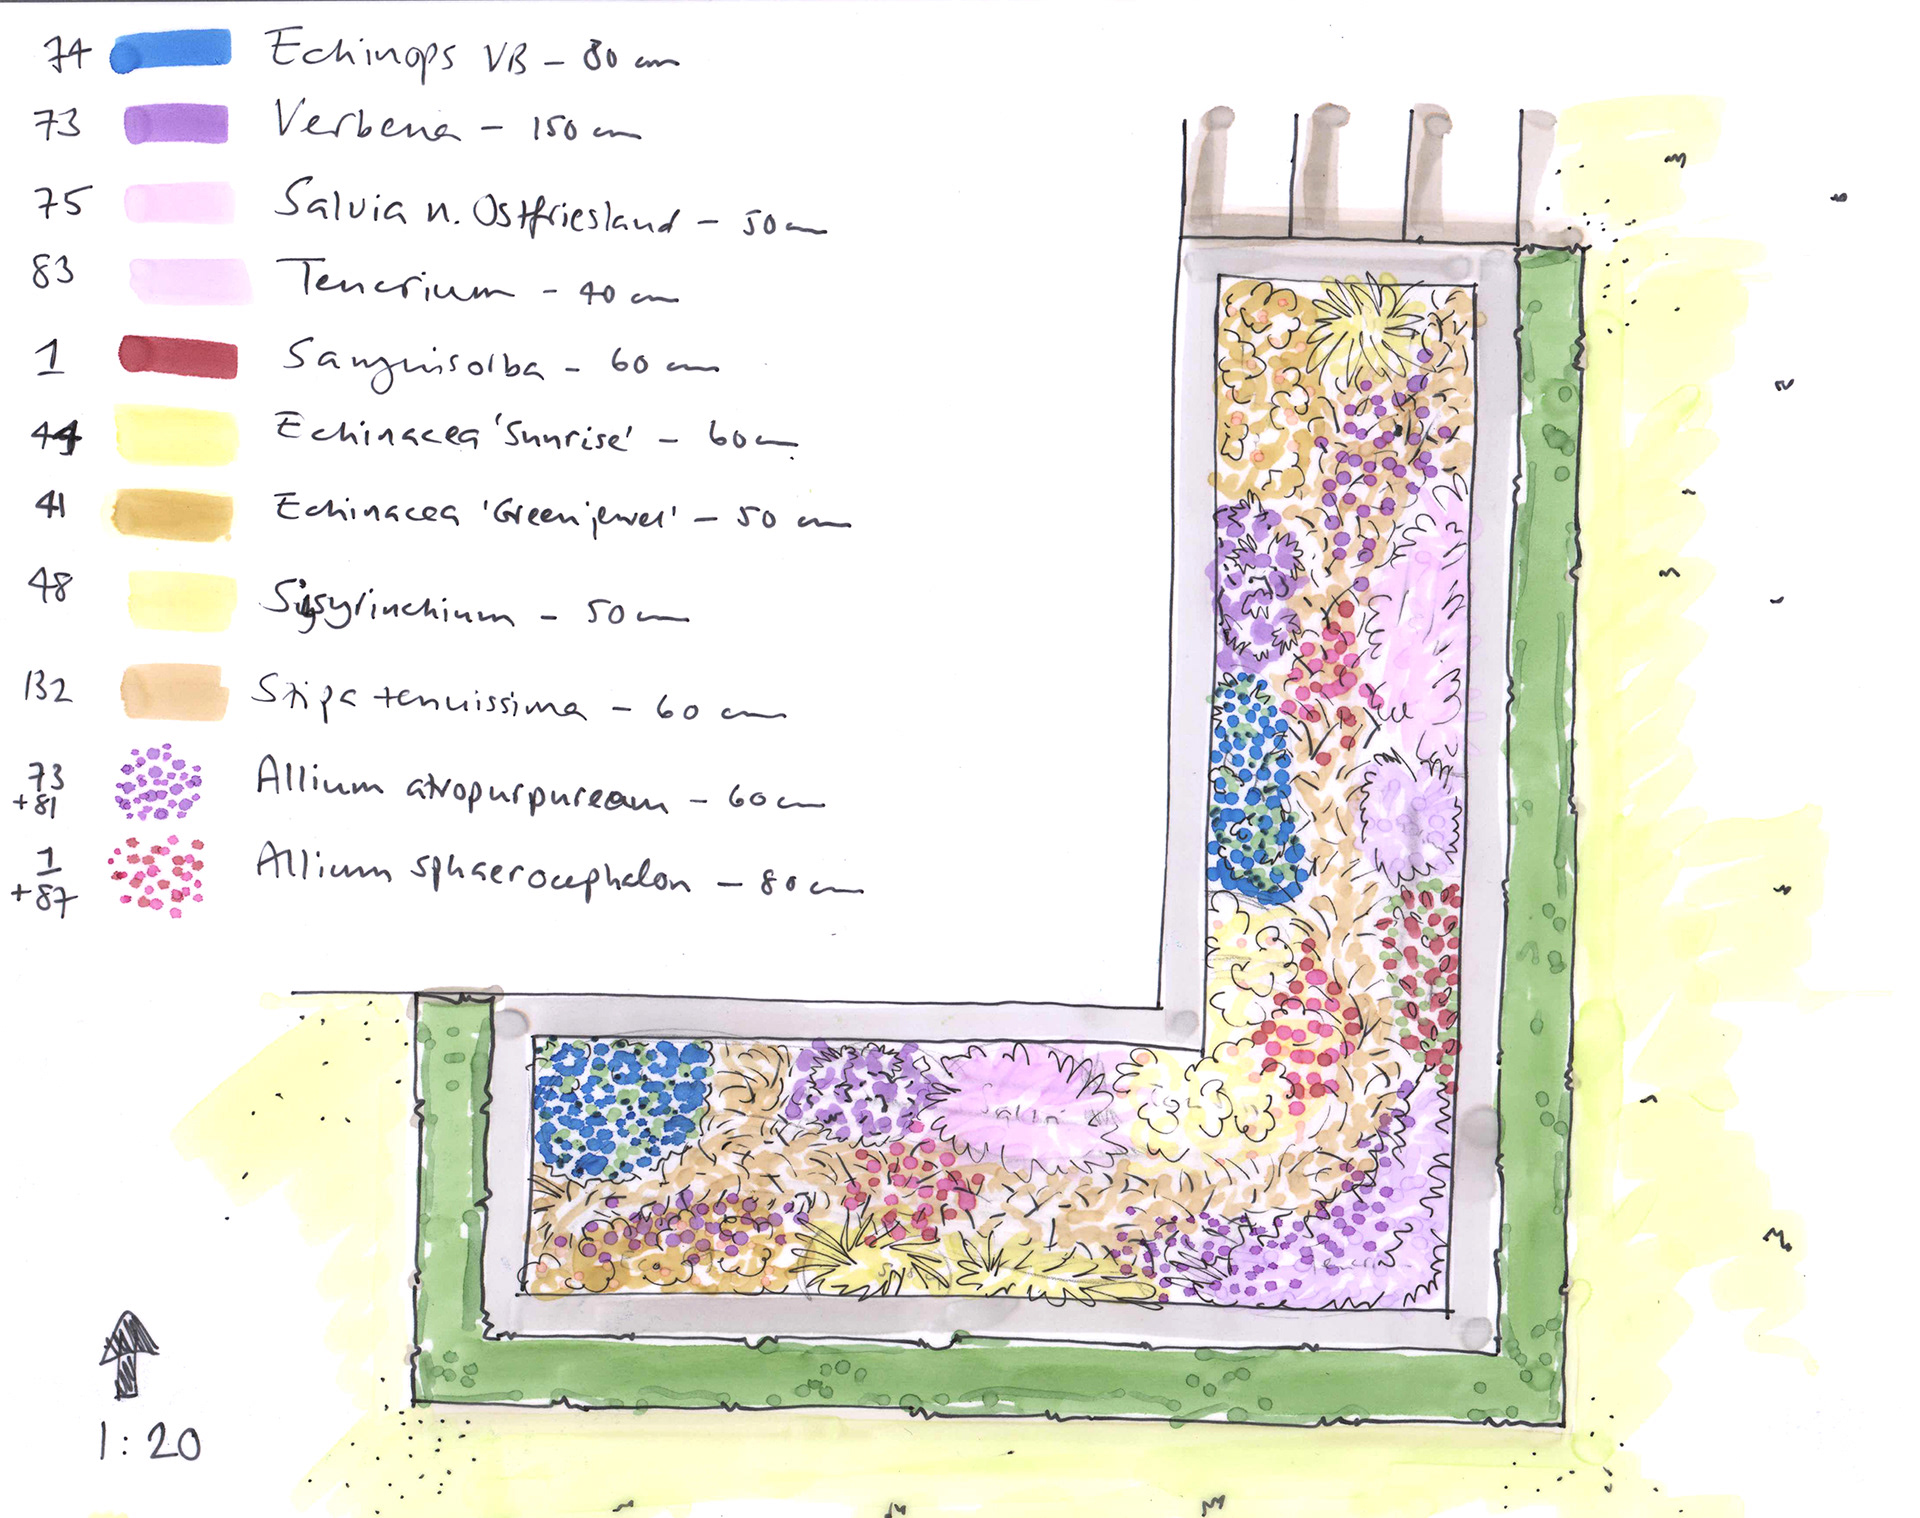 74 Echinops VB - 80 cm
73 Verbena - 150 cm
75 Salvia n. Ostfriesland - 50 cm
83 Tencrium - 40 cm
1 Sanguisorba - 60 cm
44 Echinacea 'Sunrise' - 60 cm
41 Echinacea 'Greenjewel' - 50 cm
48 Sisyrinchium - 50 cm
132 Stipa tenuissima - 60 cm
73 +81 Allium atropurpureum - 60 cm
1 +87 Allium sphaerocephalon - 80 cm
1:20